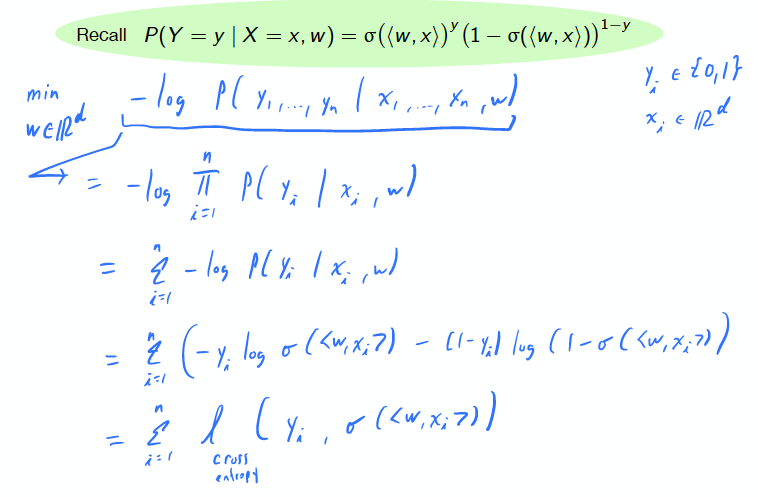 Recall P(Y = y | X = x, w) = σ(⟨w, x⟩)^y (1 − σ(⟨w, x⟩))^{1−y}
min w∈ℝ^d −log P(y_1, ..., y_n | x_1, ..., x_n, w) y_i ∈ {0,1}
x_i ∈ ℝ^d
= −log ∏_{i=1}^n P(y_i | x_i, w)
= Σ_{i=1}^n −log P(y_i | x_i, w)
= Σ_{i=1}^n (−y_i log σ(<w,x_i>) − (1−y_i) log (1−σ(<w,x_i>))
= Σ_{i=1}^n ℓ (y_i, σ(<w,x_i>))
cross
entropy